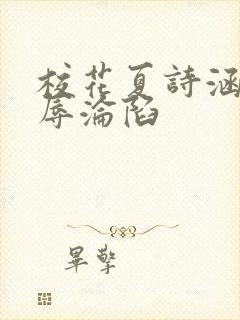 校花夏詩涵
辱淪陷
畢擎